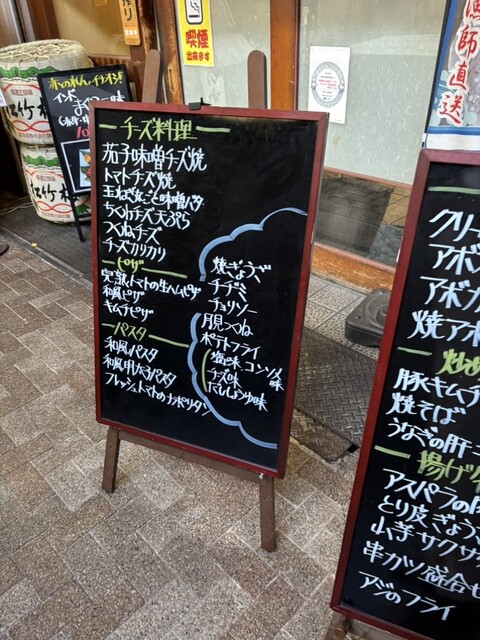 喫煙
出来ます
漁師直送
赤のれんイチオシ!
松竹梅
チーズ料理
茄子味噌チーズ焼
トマトチーズ焼
玉ねぎ丸ごと味噌バター
ちくわチーズ天ぷら
つくねチーズ
チーズカリカリ
ピザ
完熟トマトの生ハムピザ
和風ピザ
キムチピザ
パスタ
和風パスタ
和風明太子パスタ
フレッシュトマトのナポリタン
焼ぎょうざ
チヂミ
チョリソー
月見つくね
ポテトフライ
塩味 コンソメ味
チーズ味
だししょうゆ味
クリー
アボ
アボカ
焼アボ
炒め
豚キムチ
焼そば
うなぎの肝
揚げ
アスパラの
とり皮ぎょう
山芋サクサ
串カツ盛合せ
アジのフライ